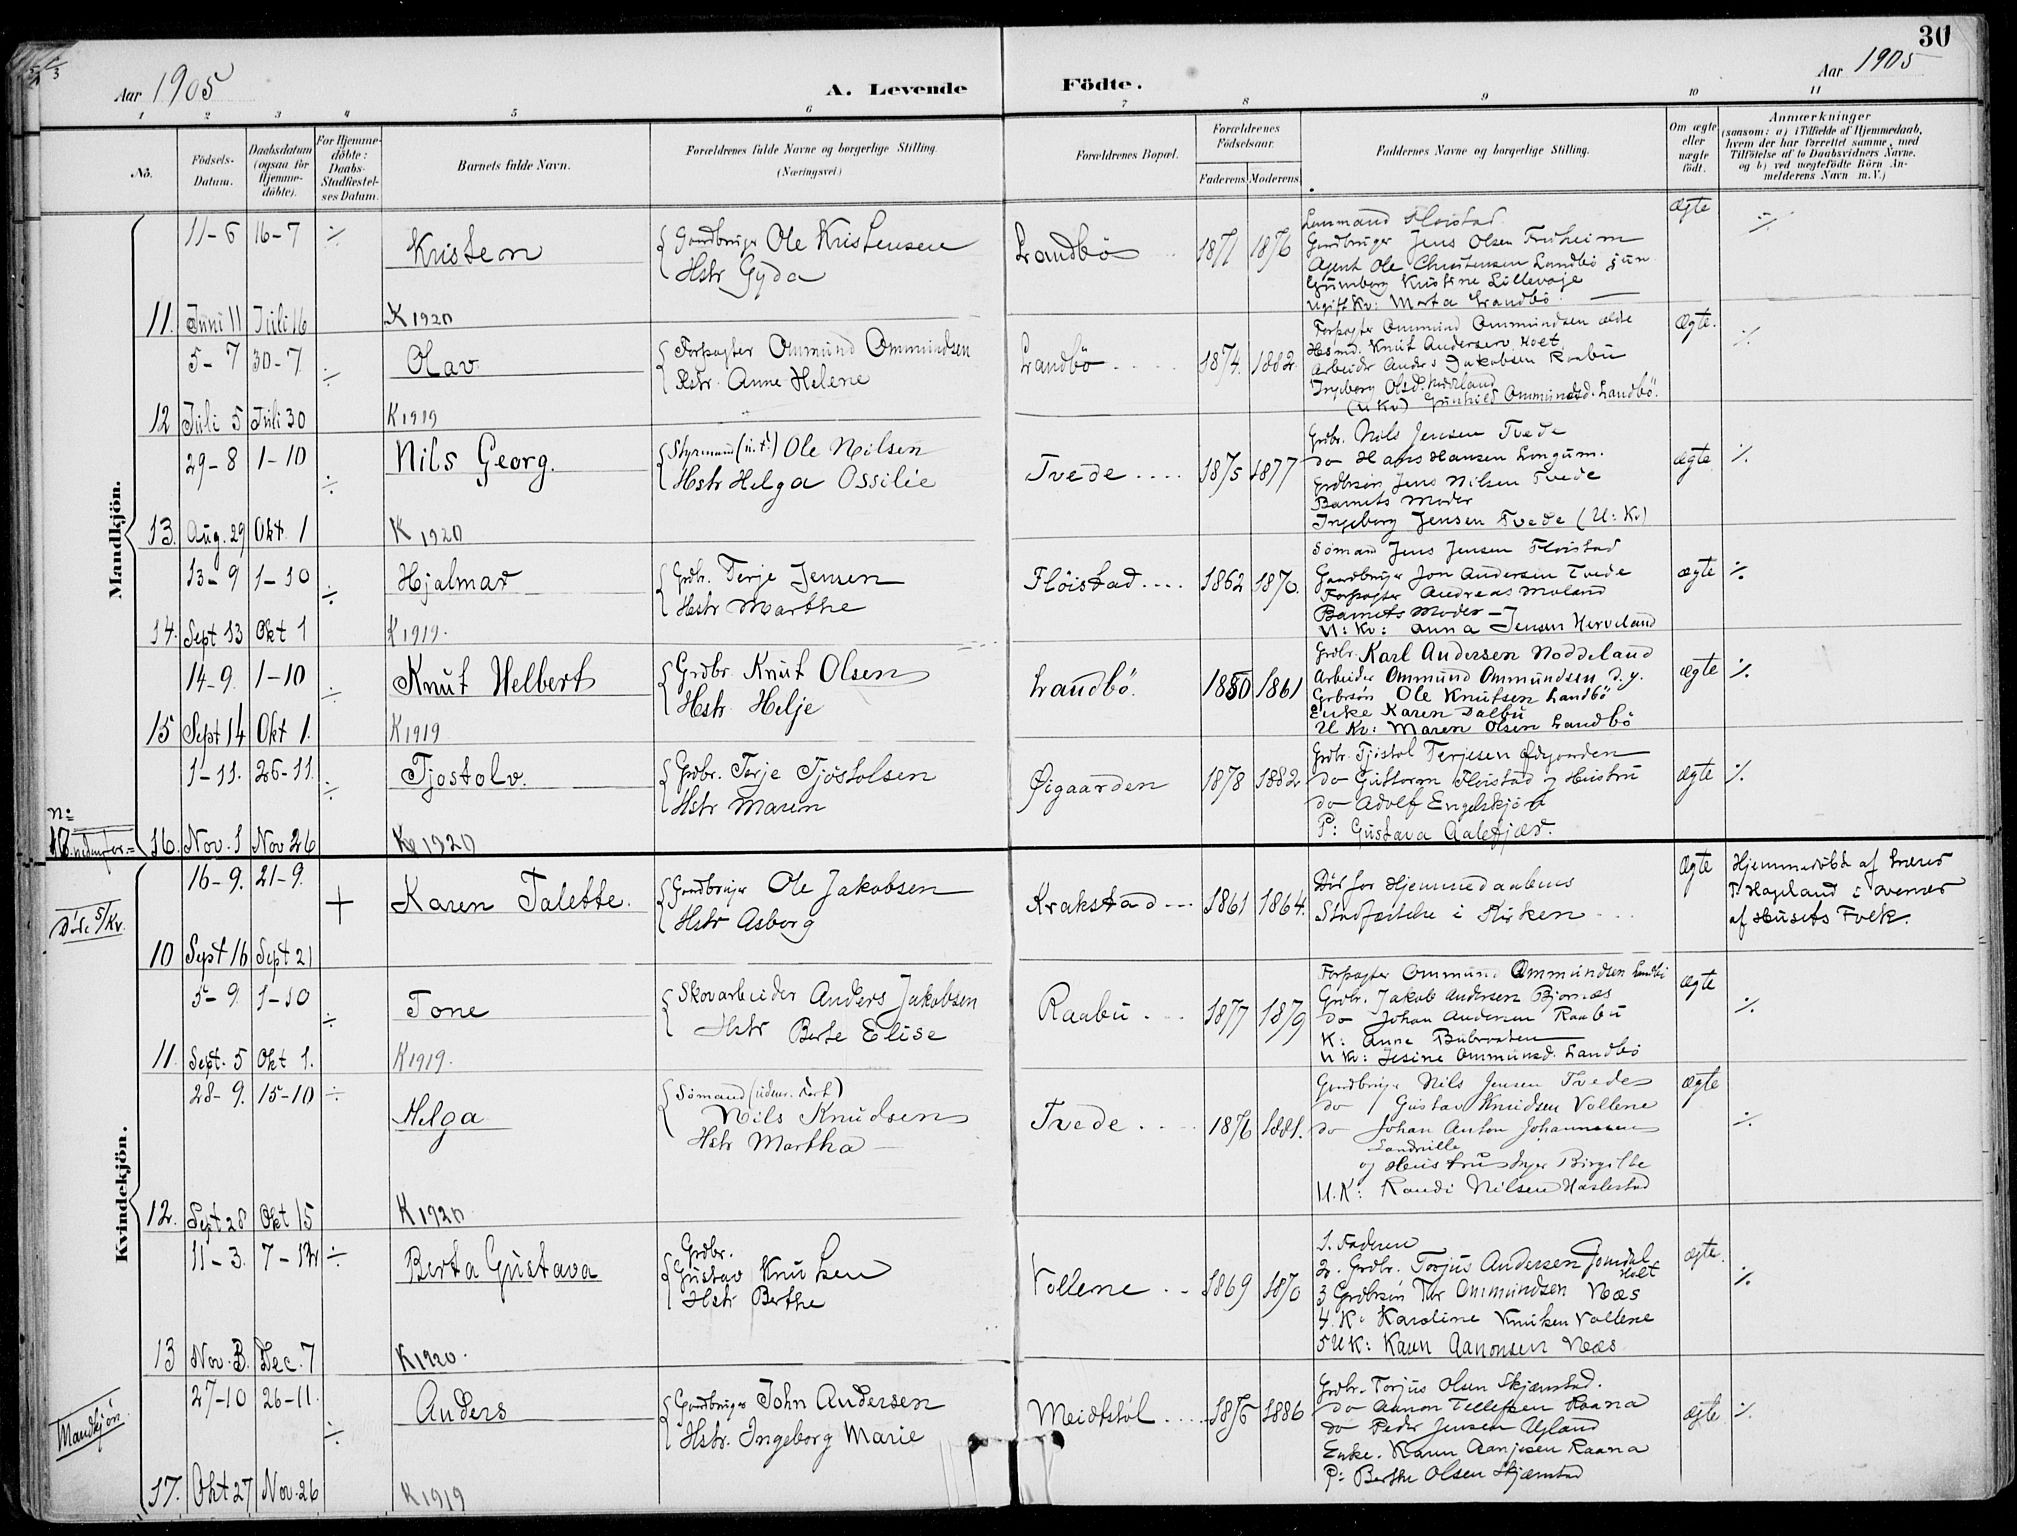 30
Aar 1905
A. Levende Födte.
Aar 1905
1 2 3 4 5 6 7 8 9 10 11
No.
Födsels-Datum.
Daabsdatum (ogsaa for Hjemme-döbte).
For Hjemme-döbte: Daabs-Stadfæstel-ses Datum.
Barnets fulde Navn.
Forældrenes fulde Navne og borgerlige Stilling. (Næringsvei)
Forældrenes Bopæl.
Forældrenes Födselsaar.
Faderens Moderens
Faddernes Navne og borgerlige Stilling.
Om ægte eller uægte födt.
Anmærkninger
(saasom: a) i Tilfælde af Hjemmedaab, hvem der har forrettet samme, med Tilföielse af to Daabsvidners Navne, og b) ved uægtefödte Börn An-melderens Navn m. V.)
Mandkjön.
11-6 16-7 ÷ Kristen
Gaardbruger Ole Kristensen
Hstr Gyda
Landbö 1871 1876
Lensmand Floistad
Gardbruger Jens Olsen Fruheim
Agent Ole Christensen Landbö jun
Gunborg Kristine Lillevaje
Ugift Kv: Marta Landbö
Ægte ÷
11. Juni 11 Juli 16 K 1920
5-7 30-7 ÷ Olav
Forpagter Ommund Ommundsen
Hstr. Anne Helene
Landbö 1874. 1882
Forpagter Ommund Ommundsen ældre
Hsmd. Knut Andersen Holt
Arbeider Anders Jakobsen Raabu
Ingeborg Olsd.
(U Kv) Gunhild Ommundsd. Landbö.
Ægte. ÷
12 Juli 5 Juli 30 K 1919
29-8 1-10 ÷ Nils Georg.
Styrmand (u.f.) Ole Nilsen
Hstr Helga Ossilie
Tvede 1875 1877
Grdbr. Nils Jensen Tvede
do Hans Hansen Longum.
Grdbrsön Jens Nilsen Tvede
Barnets Moder
Ingeborg Jensen Tvede (U: Kv)
Ægte ÷
13. Aug. 29 Okt 1 K 1920
13-9 1-10 ÷ Hjalmar
Grdbr. Terje Jensen
Hstr Marthe
Flöistad 1862 1870.
Sömand Jens Jensen Floistad
Gaardbruger Jon Andersen Tvede
Forpagter Andreas Moland
Barnets Moder
U: Kv: Anna Jensen Herveland
ægte ÷
14. Sept 13 Okt 1 K 1919.
14-9. 1-10 ÷ Knut Helbert
Grdbr. Knut Olsen
Hstr. Helje
Landbö. 1850 1861
Grdbr. Karl Andersen Noddeland
Arbeider Ommund Ommundsen d.y.
Grbrsön Ole Knutsen Landbö
Enke Karen Dalbu
U Kv: Maren Olsen Landbö
ægte ÷
15 Sept 14 Okt 1. K 1919
1-11. 26-11. ÷ Tjostolv.
Grdbr. Terje Tjöstolsen
Hstr Maren
Øigaarden 1878 1882
Grdbr. Tjöstol Terjesen Ødegaarden
do Guttorm Floistad og Hustru
do Adolf Engelskjön
P: Gustava Aalefjær.
Ægte ÷
No 17 nedenfor.
16. Nov. 1 Nov 26 K 1920
Kvindekjön.
16-9. 21-9. + Karen Talette.
Gardbruger Ole Jakobsen
Hstr Asborg
Krakstad 1861 1864.
Död for Hjemmedaabens
Stadfæstelse i Kirken
Ægte
Hjemmedöbt af Lærer
T. Hageland i overvær
af Husets Folk.
10 Sept 16 Sept 21
5-9. 1-10 ÷ Tone
Skovarbeider Anders Jakobsen
Hstr Berte Elise
Raabu 1877 1879
Forpagter Ommund Ommundsen Landbö
Grdbr. Jakob Andersen Bjornæs
do Johan Andersen Raabu
K: Anne Bubraaten
U Kv: Jesine Ommundsd. Landbö
Ægte ÷
11. Sept. 5 Okt 1. K 1919.
28-9. 15-10 ÷ Helga
Sömand (udenr. Fart)
Nils Knudsen
Hstr Martha
Tvede 1876 1881.
Gardbruger Nils Jensen Tvede
do Gustav Knudsen Vollene
do Johan Anton Johannesen
Landville
og Hustru Inger Birgitte
U.K: Randi Nilsen Haslestad
Ægte ÷
12. Sept 28 Okt 15 K 1920
11-3. 7-12 ÷ Berta Gustava
Grdbr.
Gustav Knutsen
Hstr Berthe
Vollene 1869 1870
1. Faderen
2. Grdbr. Torjus Andersen Jomdal
Holt
3 Grdbrsön Tor Ommundsen Næs
4. K: Karoline Knutsen Vollene
5 U K: Karen Aanonsen Næs
ægte. ÷
13 Nov. 3. Dec. 7 K 1920.
Mandkjön
27-10 26-11. ÷ Anders
Gardbruger John Andersen
Hstr. Ingeborg Marie
Meidtstöl 1876 1886
Grdbr. Torjus Olsen Skjærstad.
do Aanon Tellefsen Raana
do Peder Jensen Ugland
Enke. Karen Aanjesen Raana
P: Berthe Olsen Skjærstad
ægte ÷
17. Okt 27 Nov. 26 K 1919